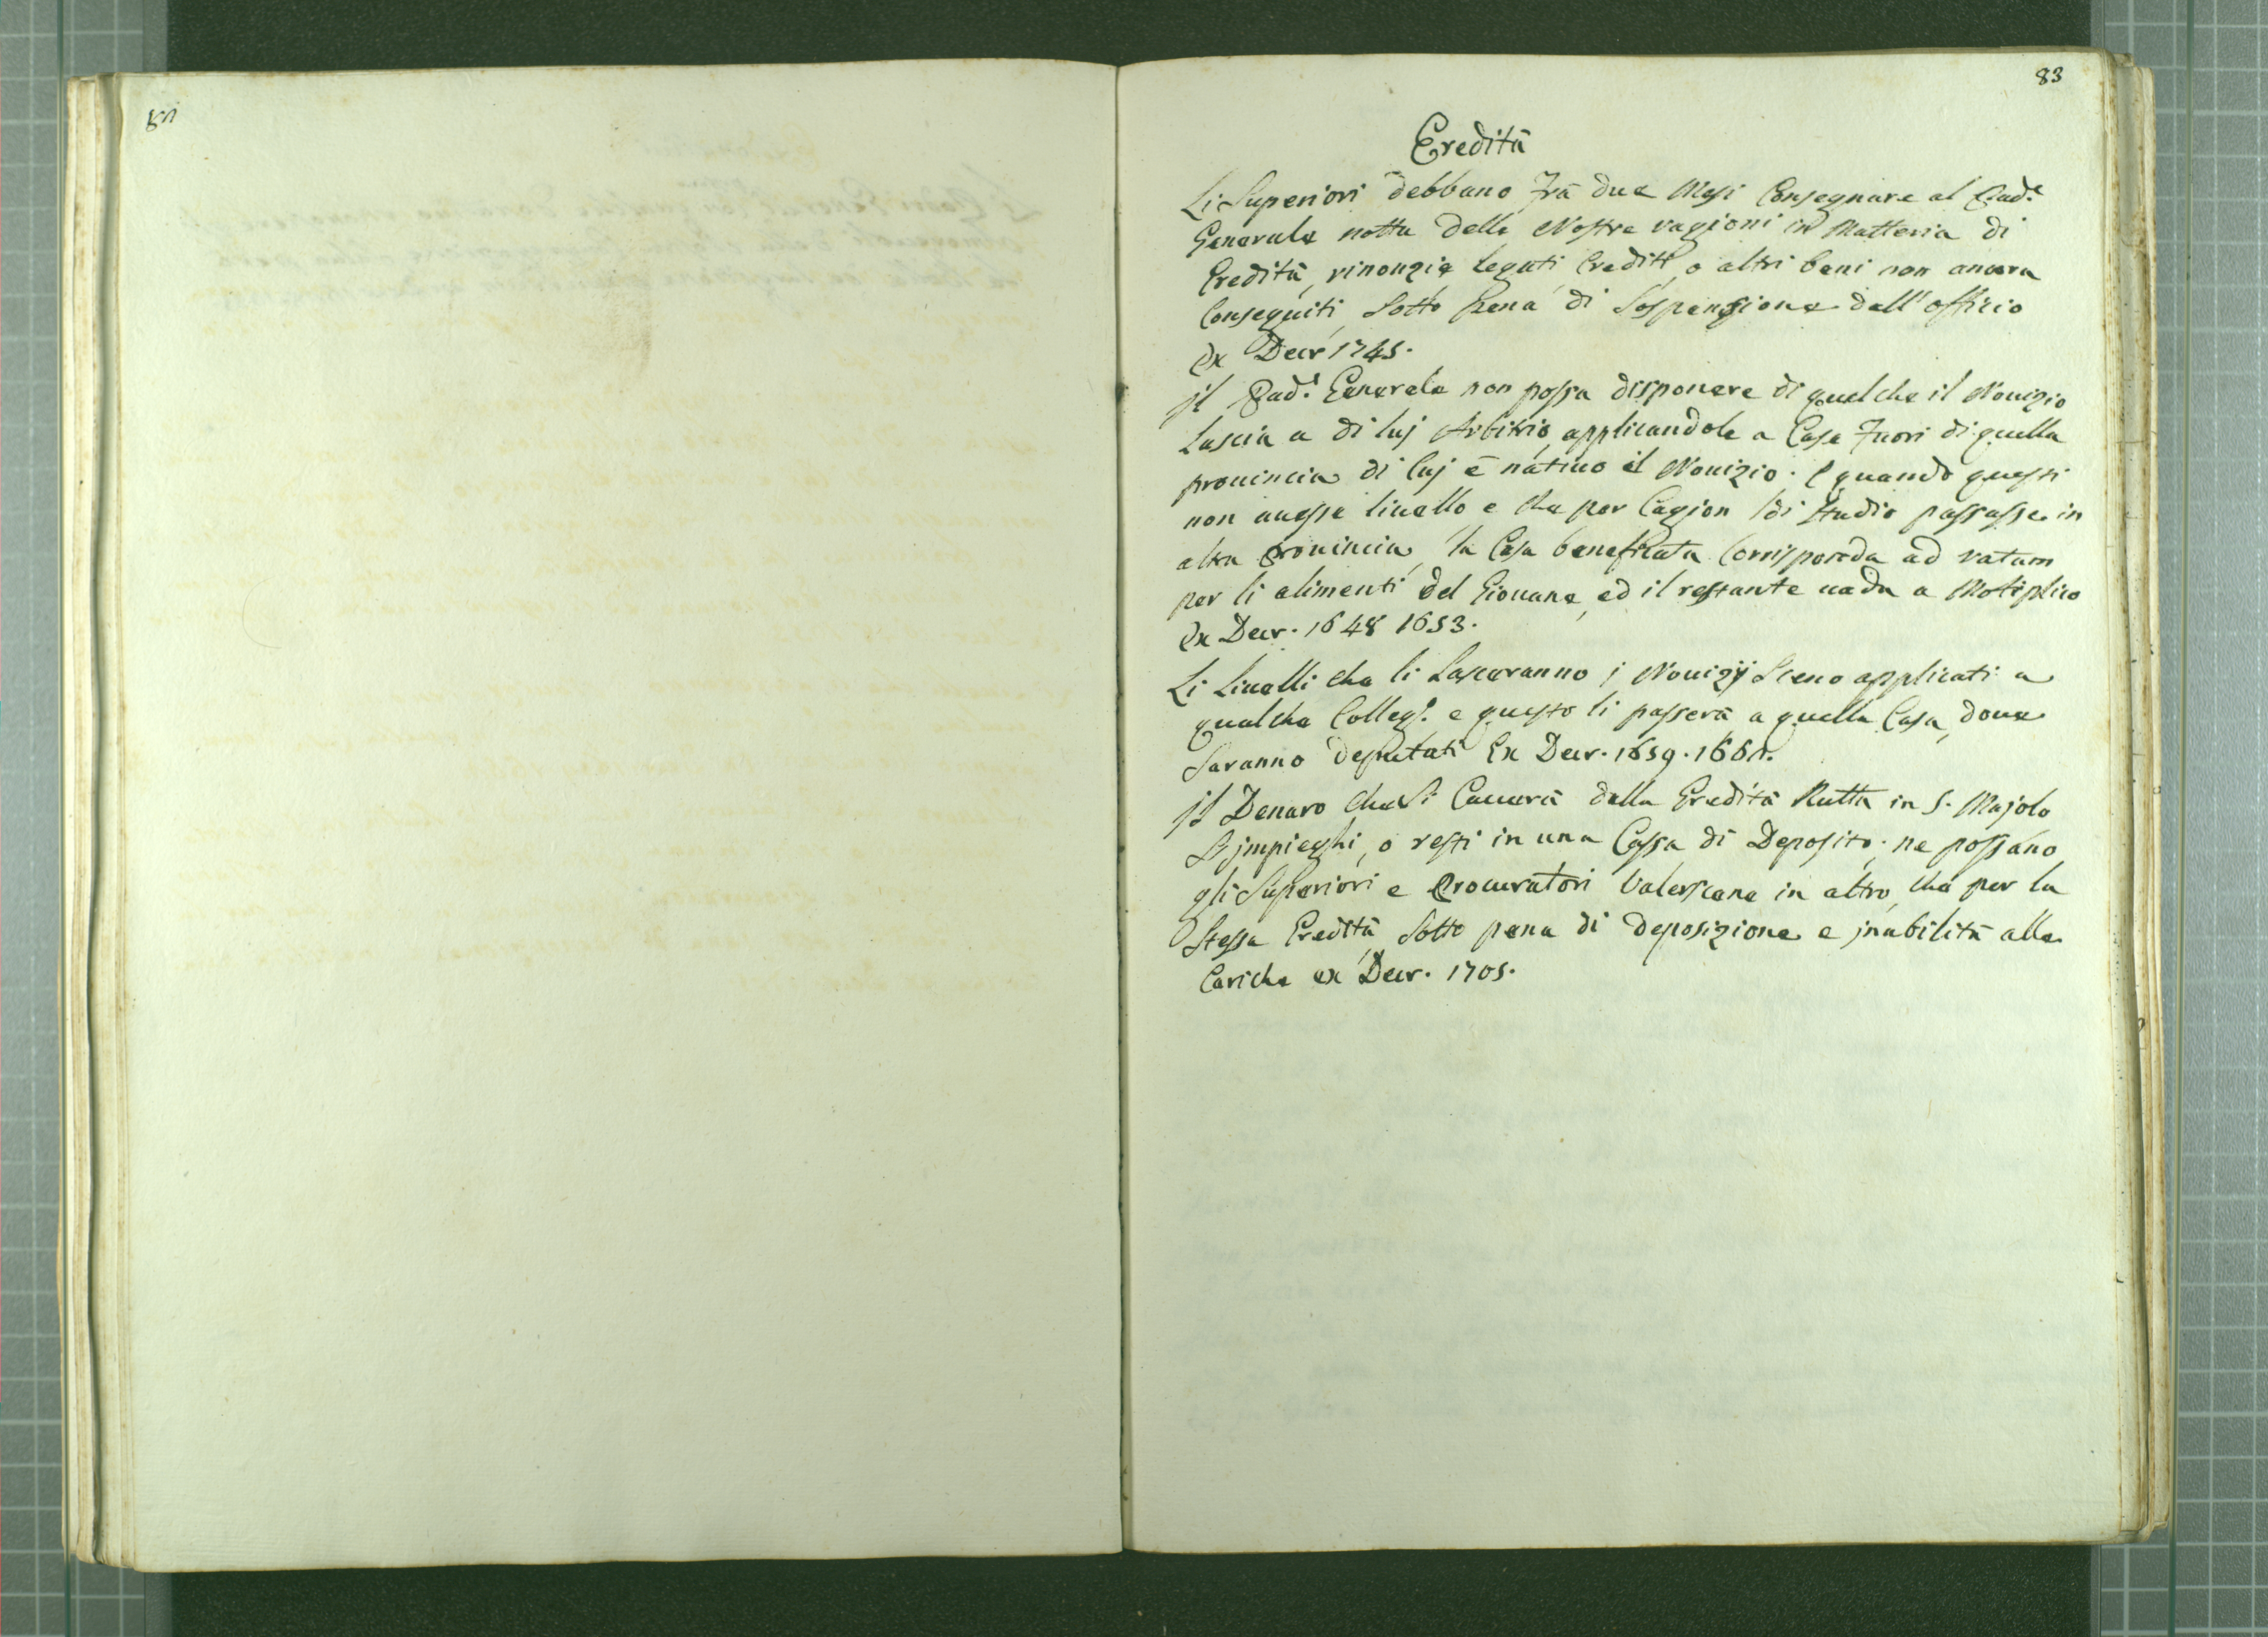 82
83
Eredità
Li Superiori debbano frà due Mesi Consegnare al Pad.e
Generale notta delle Nostre ragioni in Matteria di
Eredità, rinonzie, legati, Crediti, o altri beni non ancora
Conseguiti, Sotto pena di Sospensione dall'officio
ex Decr 1745.
jl Pad.e Generale non possa disponere di quel che il Nouizio
Lascia a di luj Arbitrio, applicandole a Case Fuori di quella
prouincia di luj è natiuo il Nouizio. E quando questi
non auesse liuello e che per Cagion di Studio passasse in
altra Prouincia, la Casa beneficata Corrisponda ad ratam
per li alimenti del Giouane, ed il restante uada a Motiplico
ex Decr. 1648 1653.
Li Liuelli che li Lasceranno j Nouizij Sieno applicati a
qualche Colleg.o e questo li passerà a quella Casa, doue
Saranno deputati Ex Decr. 1659. 1661.
jl Denaro che Si Cauerà dalla Eredità Rutta in S. Majolo
S'jmpieghi, o resti in una Cassa di Deposito; ne possano
gli Superiori e Procuratori Valersene in altro, che per la
Stessa Eredità, Sotto pena di deposizione e jnabilità alle
Cariche ex Decr. 1705.